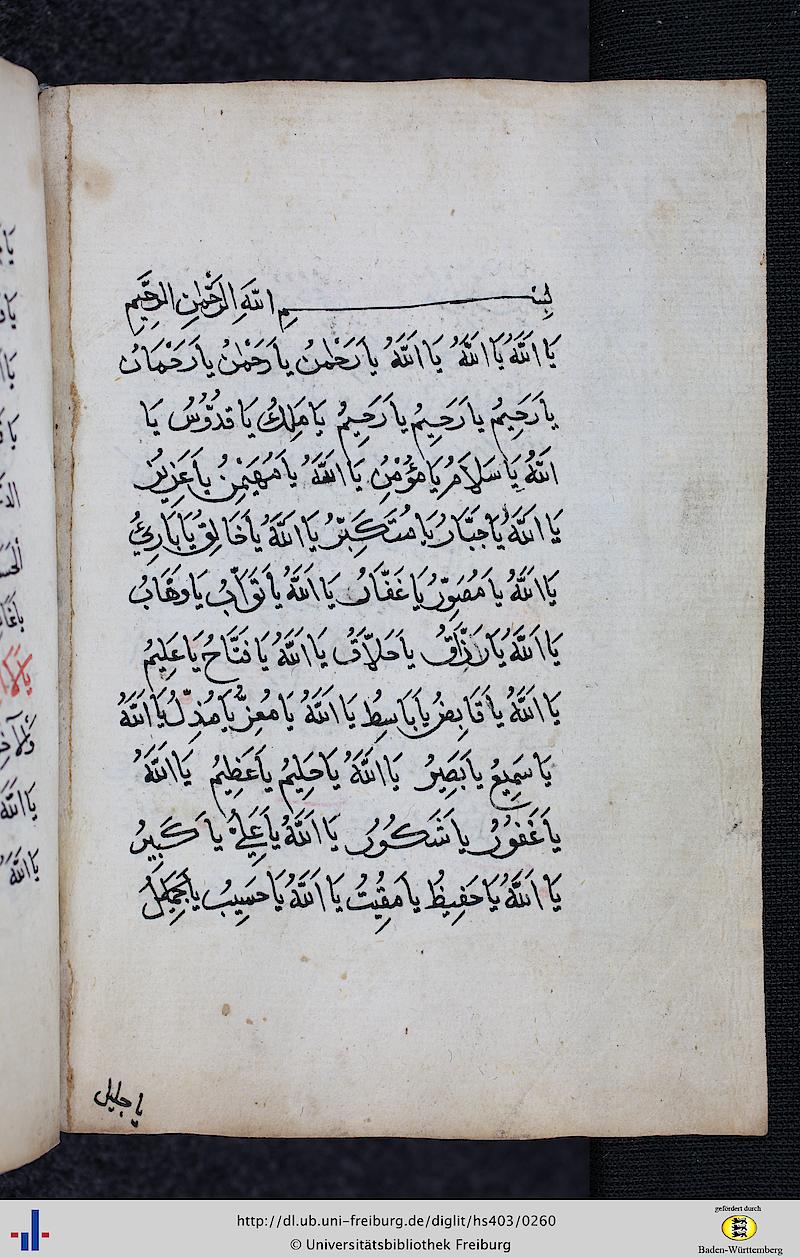 بِسْمِ اللّٰهِ الرَّحْمٰنِ الرَّحِيْمِ
يَا اَللّٰهُ يَا اَللّٰهُ يَا اَللّٰهُ يَا رَحْمٰنُ يَا رَحْمٰنُ يَا رَحْمَانُ
يَا رَحِيْمُ يَا رَحِيْمُ يَا رَحِيْمُ يَا مَلِكُ يَا قُدُّوْسُ يَا
اَللّٰهُ يَا سَلَامُ يَا مُؤْمِنُ يَا اَللّٰهُ يَا مُهَيْمِنُ يَا عَزِيْزُ
يَا اَللّٰهُ يَا جَبَّارُ يَا مُتَكَبِّرُ يَا اَللّٰهُ يَا خَالِقُ يَا بَارِئُ
يَا اَللّٰهُ يَا مُصَوِّرُ يَا غَفَّارُ يَا اَللّٰهُ يَا تَوَّابُ يَا وَهَّابُ
يَا اَللّٰهُ يَا رَزَّاقُ يَا خَلَّاقُ يَا اَللّٰهُ يَا فَتَّاحُ يَا عَلِيْمُ
يَا اَللّٰهُ يَا قَابِضُ يَا بَاسِطُ يَا اَللّٰهُ يَا مُعِزُّ يَا مُذِلُّ يَا اَللّٰهُ
يَا سَمِيْعُ يَا بَصِيْرُ يَا اَللّٰهُ يَا حَلِيْمُ يَا عَظِيْمُ يَا اَللّٰهُ
يَا غَفُوْرُ يَا شَكُوْرُ يَا اَللّٰهُ يَا عَلِيُّ يَا كَبِيْرُ
يَا اَللّٰهُ يَا حَفِيْظُ يَا مُقِيْتُ يَا اَللّٰهُ يَا حَسِيْبُ يَا جَمِيْلُ
يا جليل
http://dl.ub.uni-freiburg.de/diglit/hs403/0260
© Universitätsbibliothek Freiburg
gefördert durch
Baden-Württemberg